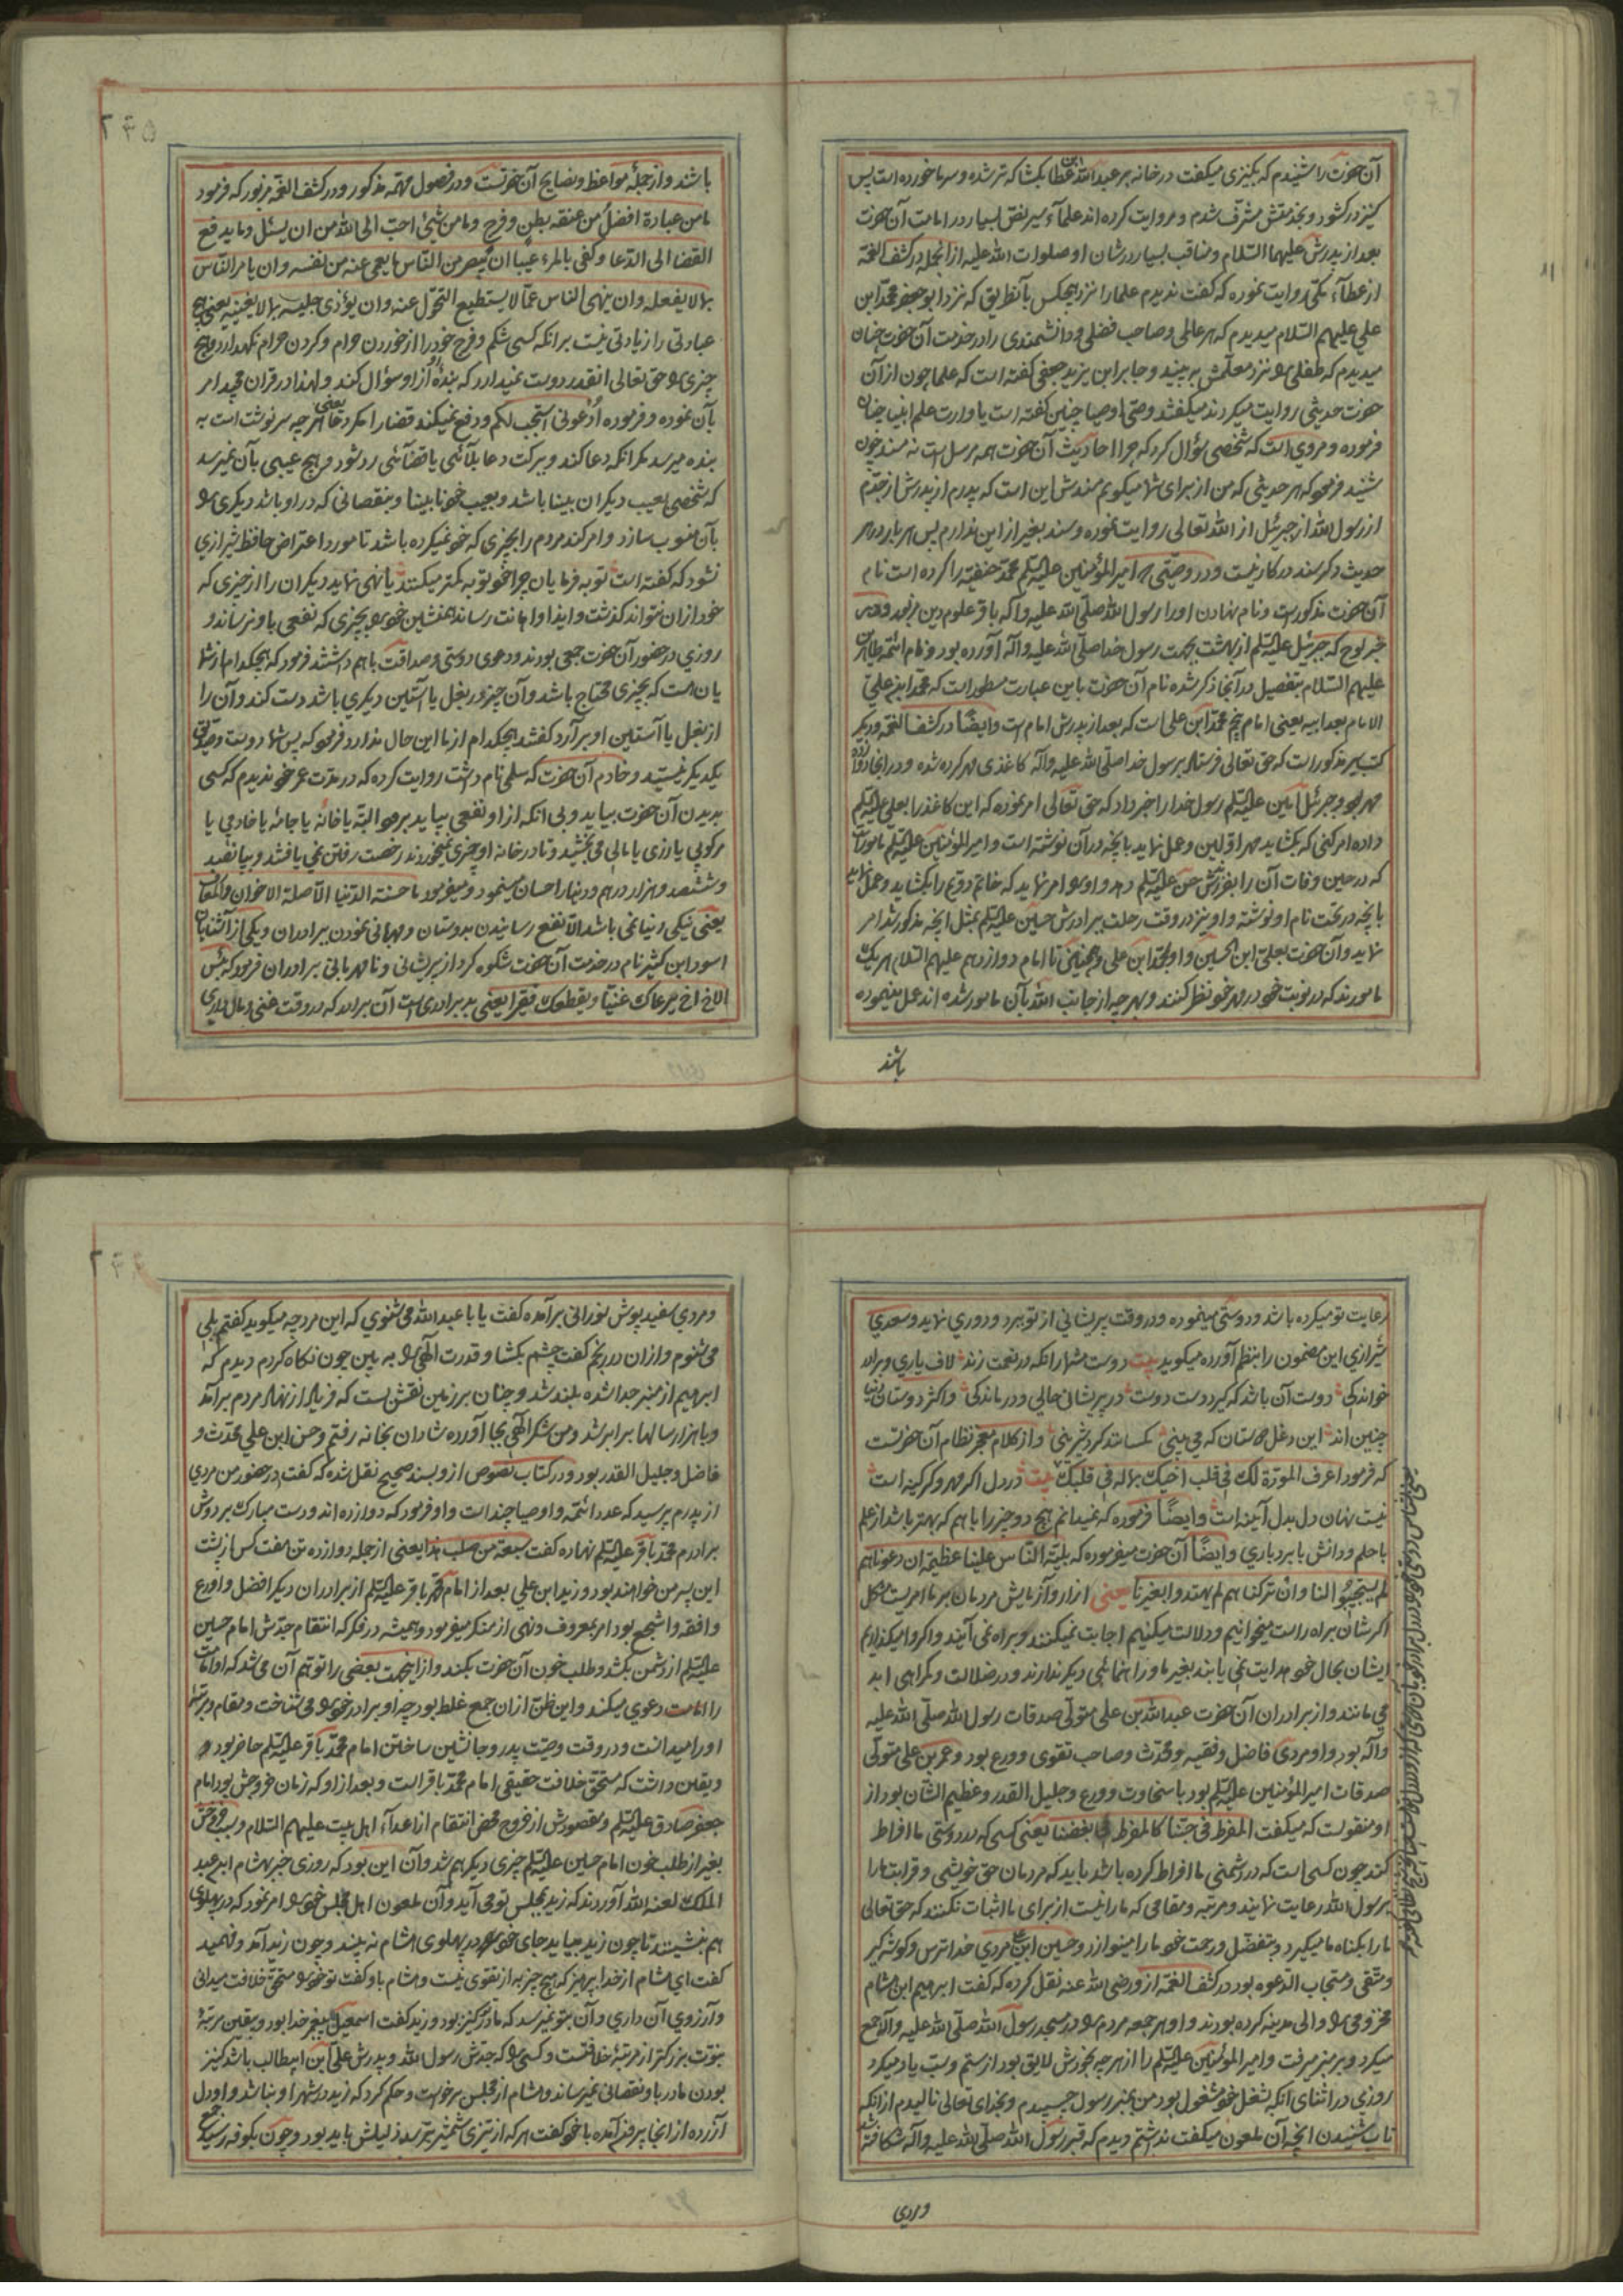 آن حضرت را شنیدم که بکنیزی میکفت در خانه بر عبدالله ابن عطا بکشا که تر شده و سرما خورده است پس
کنیز در کشود و بخدمتش مشرف شدم و روایت کرده اند علماء سیر نص بسیار در امامت آن حضرت
بعد از پدرش علیهما السلام و مناقب بسیار در شان او صلوات الله علیه از انجمله در کشف الغمه
از عطاء مکی روایت نموده که کفت ندیدم علما را نزد هیچکس بآنطریق که نزد ابو جعفر محمد ابن
علی علیهم السلام میدیدم که هر عالمی و صاحب فضلی و دانشمندی را در خدمت آن حضرت چنان
میدیدم که طفلی را نزد معلمش به بینید و جابر ابن یزید جعفی کفته است که علما چون از آن
حضرت حدیثی روایت میکردند میکفتند وصی اوصیا چنین کفته است یا وارث علم انبیا چنان
فرموده و مروی است که شخصی سؤال کرد که چرا احادیث آن حضرت همه مرسل است نه مسند چون
شنید فرمود که هر حدیثی که من از برای شما میکویم سندش این است که پدرم از پدرش از جدم
از رسول الله از جبرئیل از الله تعالی روایت نموده و سند بغیر از این ندارم پس هر بار در هر
حدیث ذکر سند در کار نیست و در وصیتی که امیر المؤمنین علیه السلام محمد حنفیه را کرده است نام
آن حضرت مذکور است و نام نهادن او را رسول الله صلی الله علیه و آله باقر علوم دین مزبور و در
خبر لوح که جبرئیل علیه السلام از بهشت بجهت رسول خدا صلی الله علیه و آله آورده بود و نام ائمه طاهرین
علیهم السلام بتفصیل در آنجا ذکر شده نام آن حضرت باین عبارت مسطور است که محمد ابن علی
الامام بعد ابیه یعنی امام پنجم محمد ابن علی است که بعد از پدرش امام است و ایضا در کشف الغمه و دیکر
کتب سیر مذکور است که حق تعالی فرستاد برسول خدا صلی الله علیه و آله کاغذی مهر کرده شده و در انجا دوازده
مهر بود و جبرئیل امین علیه السلام رسول خدا را خبر داد که حق تعالی امر نموده که این کاغذ را بعلی علیه السلام
داده امر کنی که بکشاید مهر اولین و عمل نماید بانچه در آن نوشته است و امیر المؤمنین علیه السلام مامور است
که در حین وفات آن را بفرزندش حسن علیه السلام دهد و او را امر نماید که خاتم دویم را بکشاید و عمل نماید
بانچه در تحت نام او نوشته و او نیز در وقت رحلت ببرادرش حسین علیه السلام بمثل انچه مذکور شد امر
نماید و آن حضرت بعلی ابن الحسین و او بمحمد ابن علی و همچنین تا امام دوازدهم علیهم السلام هر یک
مامورند که در نوبت خود در مهر خود نظر کنند و بهر چه از جانب الله بآن مامور شده اند عمل مینموده
باشند
باشند و از جمله مواعظ و نصایح آن حضرتست و در فصول مهمه مذکور و در کشف الغمه مزبور که فرمود
ما من عبادة افضل من عفة بطن و فرج و ما من شیئ احب الی الله من ان یسئل و ما یدفع
القضا الی الدعا و کفی بالمرء عیبا ان یبصر من الناس ما یعمی عنه من نفسه و ان یامر الناس
بما لا یفعله و ان ینهی الناس عما لا یستطیع التحول عنه و ان یؤذی جلیسه بما لا یعنیه یعنی هیچ
عبادتی را زیادتی نیست بر انکه کسی شکم و فرج خود را از خوردن حرام و کردن حرام نکهدارد و هیچ
چیزی را حق تعالی انقدر دوست نمیدارد که بنده از او سؤال کند و لهذا در قرآن مجید امر
بآن نموده و فرموده ادعونی استجب لکم و دفع نمیکند قضا را مکر دعا یعنی هر چه سرنوشت است به
بنده میرسد مکر انکه دعا کند و ببرکت دعا بلائی یا قضائی رد شود و هیچ عیبی بآن نمیرسد
که شخصی بعیب دیکران بینا باشد و بعیب خود نابینا و بنقصانی که در او باشد دیکری را
بآن منسوب سازد و امر کند مردم را بچیزی که خود نمیکرده باشد تا مورد اعتراض حافظ شیرازی
نشود که کفته است توبه فرمایان چرا خود توبه کمتر میکنند یا نهی نماید دیکران را از چیزی که
خود از ان نتواند کذشت و ایذا و اهانت رساند همنشین خود را بچیزی که نفعی باو نرساند و
روزی در حضور آن حضرت جمعی بودند و دعوی دوستی و صداقت با هم داشتند فرمود که هیچکدام از شما
یان هست که بچیزی محتاج باشد و آن چیز در بغل یا آستین دیکری باشد دست کند و آن را
از بغل یا آستین او بر آرد کفتند هیچکدام از ما این حال ندارد فرمود که پس شما دوست و صدیق
یکدیکر نیستید و خادم آن حضرت که سلمی نام داشت روایت کرده که در مدت عمر خود ندیدم که کسی
بدیدن آن حضرت بیاید و بی انکه از او نفعی بیابد برود البته یا خانه یا جامه یا خادمی یا
مرکوبی یا زری یا مالی می بخشید و تا در خانه او چیزی نمیخوردند رخصت رفتن نمی یافتند و بپانصد
و ششصد و هزار درهم و دینار احسان مینمود و میفرمود ما حسنة الدنیا الا صلة الاخوان و المعارف
یعنی نیکی دنیا نمی باشد الا نفع رسانیدن بدوستان و مهربانی نمودن ببرادران و یکی از آشنایان
اسود ابن کثیر نام در خدمت آن حضرت شکوه کرد از پریشانی و نامهربانی برادران فرمود که بئس
الاخ اخ یرعاک غنیا و یقطعک فقیرا یعنی بد برادری است آن برادر که در وقت غنی و مال داری
رعایت تو میکرده باشد و دوستی مینموده و در وقت پریشانی از تو ببرد و دوری نماید و سعدی
شیرازی این مضمون را بنظم آورده میکوید بیت دوست مشمار انکه در نعمت زند لاف یاری و برادر
خواندکی دوست آن باشد که کیرد دست دوست در پریشان حالی و درماندکی و اکثر دوستان دنیا
چنین اند این دغل دوستان که می بینی مکسانند کرد شیرینی و از کلام معجز نظام آن حضرتست
که فرمود اعرف المودة لک فی قلب اخیک بما له فی قلبک بیت در دل اکر مهر و کر کینه است
نیست نهان دل بدل آینه است و ایضا فرموده که نمیدانم هیچ دو چیز را با هم که بهتر باشد از علم
با حلم و دانش با بردباری و ایضا آن حضرت میفرموده که بلیة الناس علینا عظیمة ان دعوناهم
لم یستجیبوا لنا و ان ترکناهم لم یهتدوا بغیرنا یعنی ازار و آزمایش مردمان بر ما امریست مشکل
اکر شان براه راست میخوانیم و دلالت میکنیم اجابت نمیکنند و براه نمی آیند و اکر وا میکذاریم
ایشان بحال خود هدایت نمی یابند بغیر ما و راهنمائی دیکر ندارند و در ضلالت و کمراهی ابد
می مانند و از برادران آن حضرت عبدالله بن علی متولی صدقات رسول الله صلی الله علیه
و آله بود و او مردی فاضل و فقیه و محدث و صاحب تقوی و ورع بود و عمر بن علی متولی
صدقات امیر المؤمنین علیه السلام بود با سخاوت و ورع و جلیل القدر و عظیم الشان بود از
او منقولست که میکفت المفرط فی حبنا کالمفرط فی بغضنا یعنی کسی که در دوستی ما افراط
کند چون کسی است که در دشمنی ما افراط کرده باشد باید که مردمان حق خویشی و قرابت ما را
برسول الله رعایت نمایند و مرتبه و مقامی که ما را نیست از برای ما اثبات نکنند که حق تعالی
ما را بکناه ما میکیرد و بتفضل و رحمت خود ما را مینوازد و حسین ابن علی مردی خدا ترس و کوشه کیر
و متقی و مستجاب الدعوه بود در کشف الغمه از و رضی الله عنه نقل کرده که کفت ابرهیم ابن هشام
مخزومی را والی مدینه کرده بودند و او هر جمعه مردم را در مسجد رسول الله صلی الله علیه و آله جمع
میکرد و بر منبر میرفت و امیر المؤمنین علیه السلام را از هر چه بخودش لایق بود از ستم و سب یاد میکرد
روزی در اثنای انکه بشغل خود مشغول بود من بمنبر رسول چسپیدم و بخدای تعالی نالیدم از انکه
تاب شنیدن انچه آن ملعون میکفت نداشتم دیدم که قبر رسول الله صلی الله علیه و آله شکافته شد
و مردی
و مردی سفید پوش نورانی بر آمده کفت یا با عبدالله می شنوی که این مرد چه میکوید کفتم بلی
می شنوم و از ان در رنجم کفت چشم بکشا و قدرت الهی را به بین چون نکاه کردم دیدم که
ابرهیم از منبر جدا شده بلند شد و چنان بر زمین نقش بست که فریاد از نهاد مردم بر آمد
و با هزار سالها برابر شد و من شکر الهی بجا آورده شادان بخانه رفتم و حسن ابن علی محدث و
فاضل و جلیل القدر بود و در کتاب نصوص از و بسند صحیح نقل شده که کفت در حضور من مردی
از پدرم پرسید که عدد ائمه و اوصیا چند است و او فرمود که دوازده اند و دست مبارک بر دوش
برادرم محمد باقر علیه السلام نهاده کفت سبعة من صلب هذا یعنی از جمله دوازده تن هفت کس از پشت
این پسر من خواهند بود و زید ابن علی بعد از امام محمد باقر علیه السلام از برادران دیکر افضل و اورع
و افقه و اشجع بود امر بمعروف و نهی از منکر میفرمود و همیشه در فکر که انتقام جدش امام حسین
علیه السلام از دشمن بکشد و طلب خون آن حضرت بکند و از اینجهت بعضی را توهم آن می شد که او امامت
را امامت دعوی میکند و این ظن از ان جمع غلط بود چه او برادر خود را می شناخت و مقام و مرتبه
او را میدانست و در وقت وصیت پدر و جانشین ساختن امام محمد باقر علیه السلام حاضر بود و
و یقین داشت که مستحق خلافت حقیقی امام محمد باقر است و بعد از او که زمان خروجش بود امام
جعفر صادق علیه السلام و مقصودش از خروج محض انتقام از اعداء اهل بیت علیهم السلام و سبب خروجش
بغیر از طلب خون امام حسین علیه السلام چیزی دیکر هم شد و آن این بود که روزی خبر بهشام ابن عبد
الملک لعنه الله آوردند که زید بمجلس تو می آید و آن ملعون اهل مجلس خود را امر نمود که در پهلوی
هم بنشینند تا چون زید بیاید جای خود را در پهلوی هشام نه بیند و چون زید آمد و فهمید
کفت ای هشام از خدا بپرهیز که هیچ چیز به از تقوی نیست و هشام باو کفت تو خود را مستحق خلافت میدانی
و آرزوی آن داری و آن بتو نمیرسد که مادر تو کنیز بود و زید کفت اسمعیل پیغمبر خدا بود و یقین مرتبه
نبوت بزرکتر از مرتبه خلافتست و کسی را که جدش رسول الله و پدرش علی ابن ابیطالب باشد کنیز
بودن مادر باو نقصانی نمیرساند و هشام از مجلس برخواست و حکم کرد که زید در شهر او نباشد و او دل
آزرده از انجا بیرون آمده با خود کفت هر که از تیزی شمشیر بترسد ذلیلش باید بود و چون بکوفه رسید جمعی